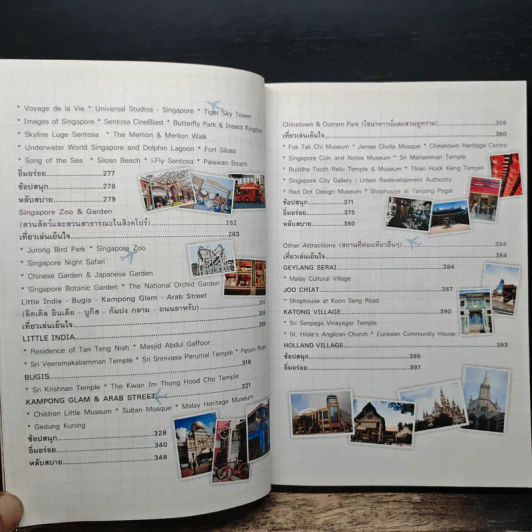 * Voyage de la Vie * Universal Studios - Singapore * Tiger Sky Tower
* Images of Singapore * Sentosa CineBlast * Butterfly Park & Insect Kingdom
* Skyline Luge Sentosa * The Merlion & Merlion Walk
* Underwater World Singapore and Dolphin Lagoon * Fort Siloso
* Song of the Sea * Siloso Beach * i-Fly Sentosa * Palawan Beach
อิ่มอร่อย.....277
ช้อปสนุก.....278
หลับสบาย.....279
Singapore Zoo & Garden
(สวนสัตว์และสวนสาธารณะในสิงคโปร์).....282
เที่ยวเล่นเย็นใจ.....283
* Jurong Bird Park * Singapore Zoo
* Singapore Night Safari
* Chinese Garden & Japanese Garden
* Singapore Botanic Garden * The National Orchid Garden
Little India - Bugis - Kampong Glam - Arab Street
(ลิตเติล อินเดีย - บูกิส - กัมปง กลาม - ถนนอาหรับ).....
เที่ยวเล่นเย็นใจ.....
LITTLE INDIA.....
* Residence of Tan Teng Niah * Masjid Abdul Gaffoor
* Sri Veeramakaliamman Temple * Sri Srinivasa Perumal Temple * Petain Road
BUGIS.....318
* Sri Krishnan Temple * The Kwan Im Thong Hood Cho Temple
KAMPONG GLAM & ARAB STREET.....321
* Children Little Museum * Sultan Mosque * Malay Heritage Museum
* Gedung Kuning
ช้อปสนุก.....328
อิ่มอร่อย.....340
หลับสบาย.....348
Chinatown & Outram Park (ไชน่าทาวน์และสวนอูทราม).....356
เที่ยวเล่นเย็นใจ.....360
* Fuk Tak Chi Museum * Jamae Chulia Mosque * Chinatown Heritage Centre
* Singapore Coin and Notes Museum * Sri Mariamman Temple
* Buddha Tooth Relic Temple & Museum * Thian Hock Keng Temple
* Singapore City Gallery / Urban Redevelopment Authority
* Red Dot Design Museum * Shophouse at Tanjong Pagar
ช้อปสนุก.....371
อิ่มอร่อย.....375
หลับสบาย.....380
Other Attractions (สถานที่ท่องเที่ยวอื่นๆ).....384
เที่ยวเล่นเย็นใจ.....384
GEYLANG SERAI.....384
* Malay Cultural Village
JOO CHIAT.....387
* Shophouse at Koon Seng Road
KATONG VILLAGE.....390
* Sri Senpaga Vinayagar Temple
* St. Hilda's Anglican Church * Eurasian Community House
HOLLAND VILLAGE.....393
ช้อปสนุก.....395
อิ่มอร่อย.....397